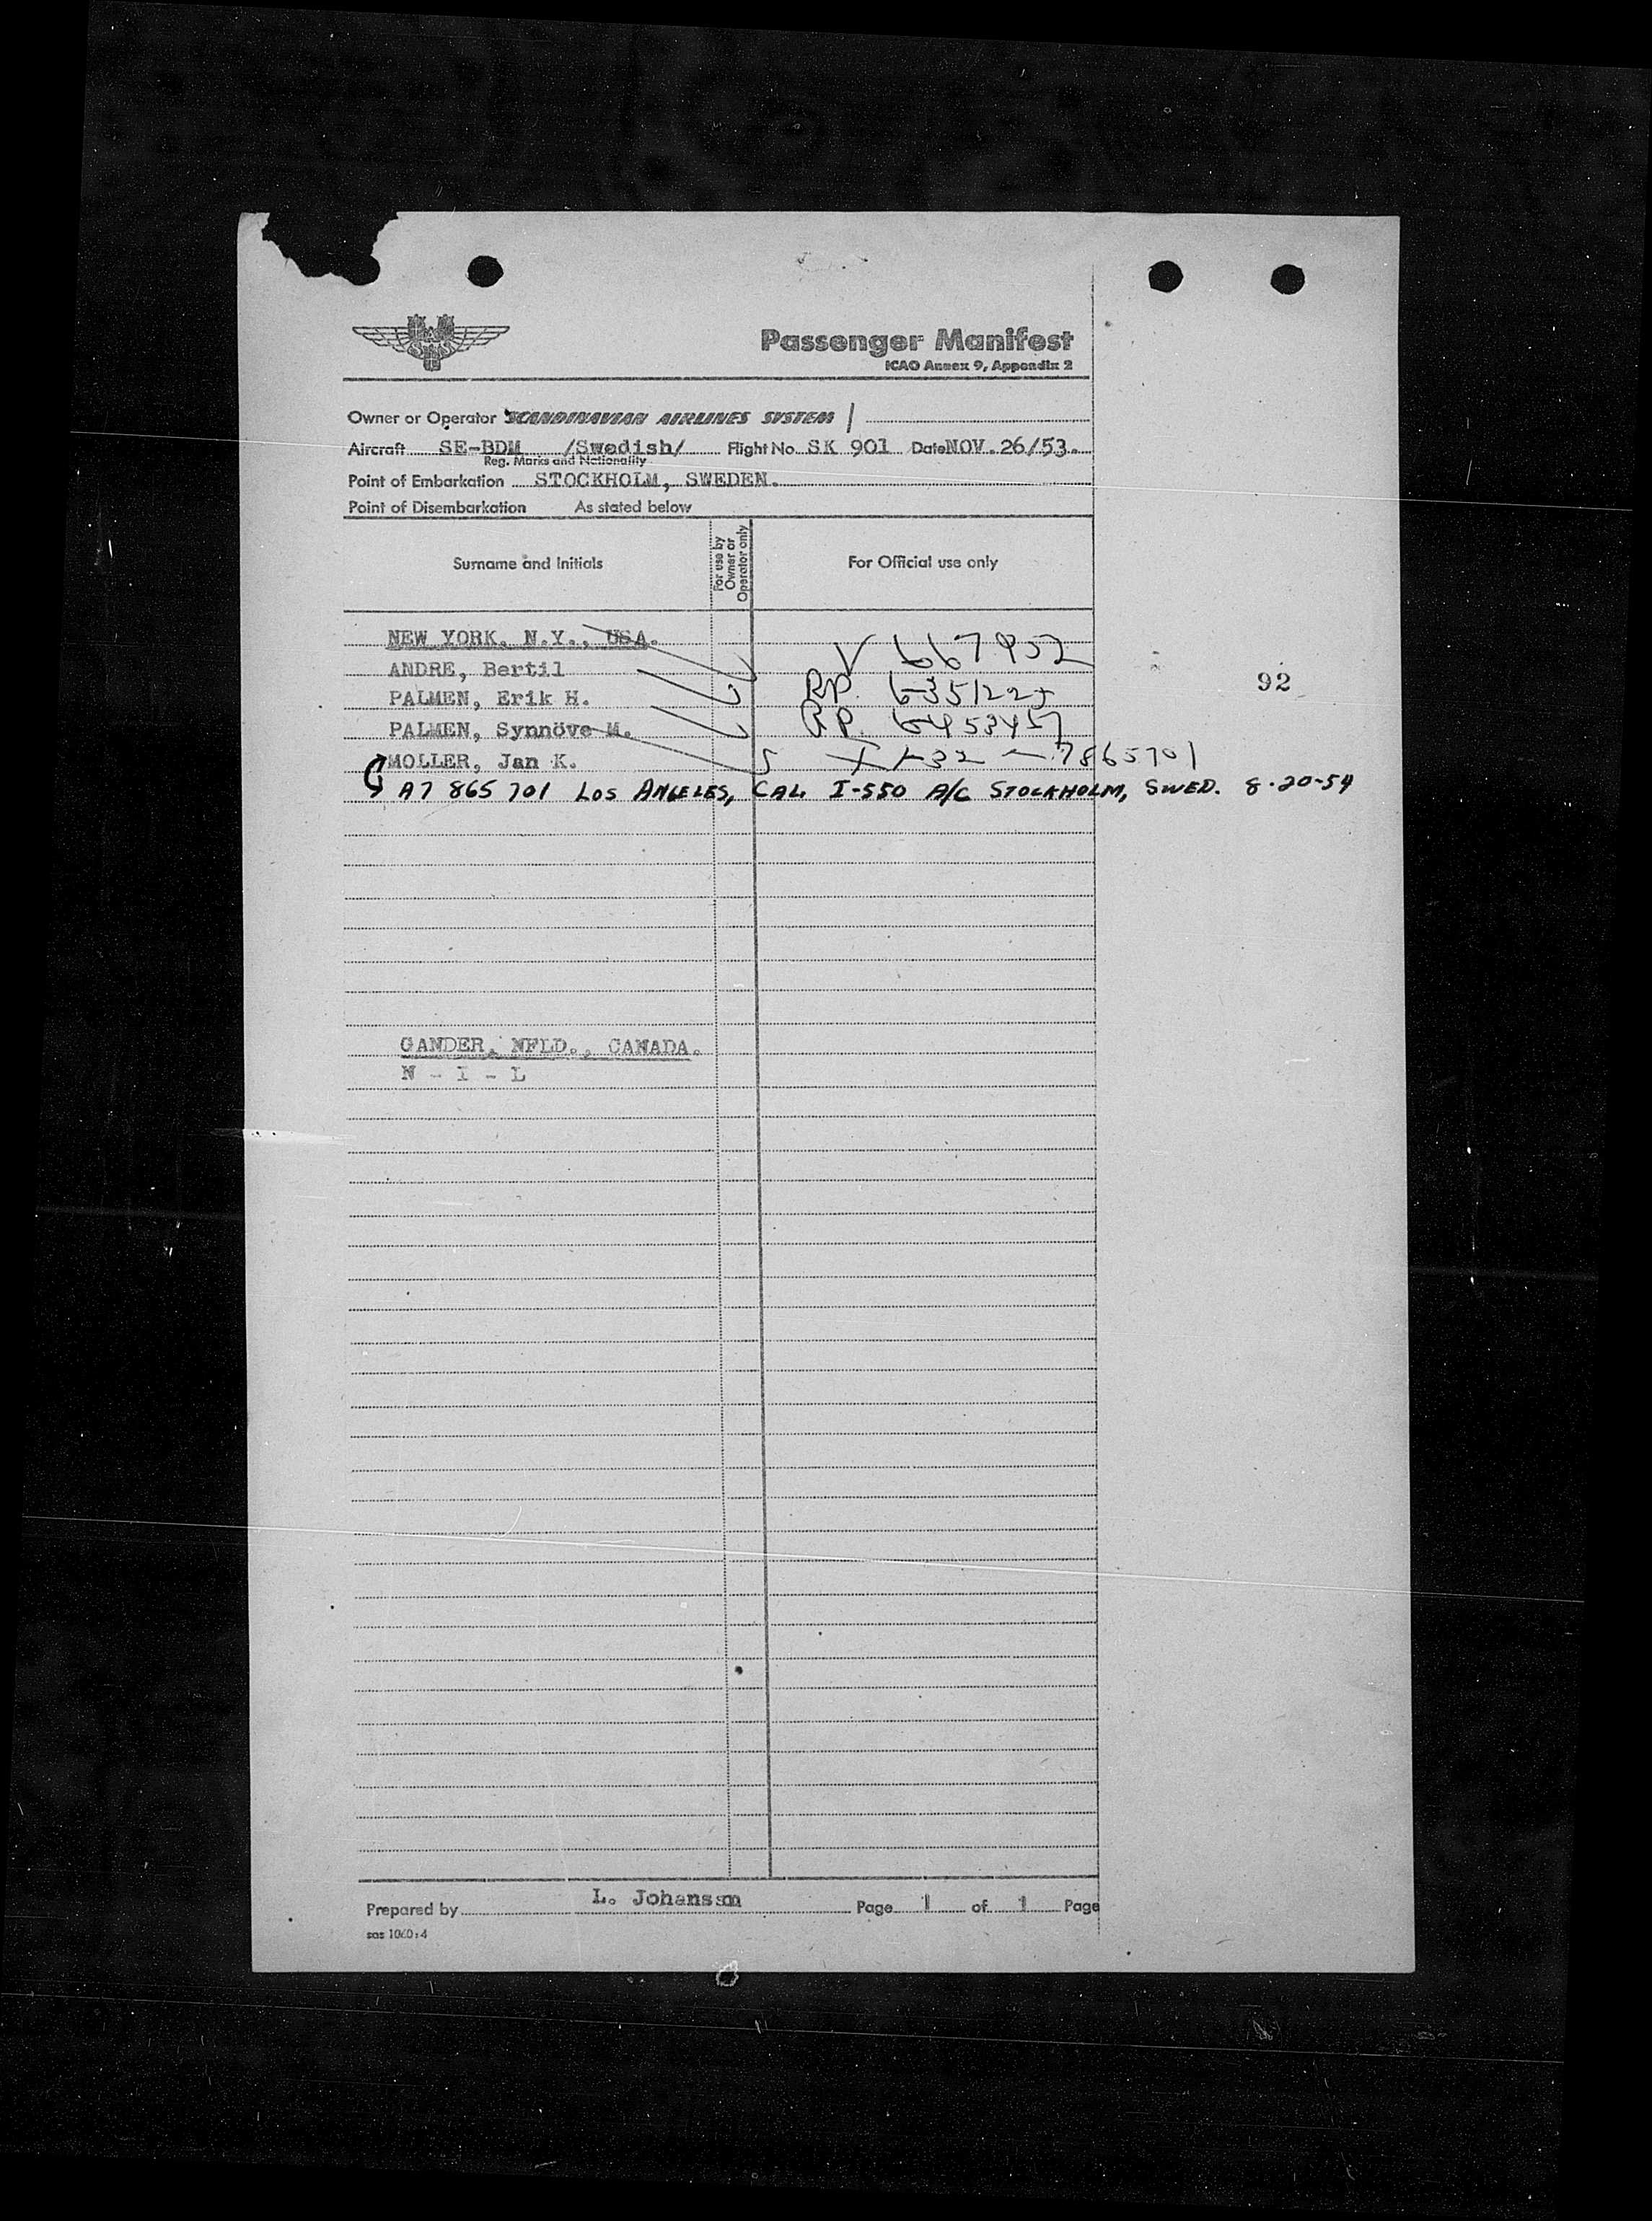 SAS
Passenger Manifest
ICAO Annex 9, Appendix 2
Owner or Operator SCANDINAVIAN AIRLINES SYSTEM
Aircraft SE-BDM /Swedish/ Flight No. SK 901 Date NOV. 26/53.
Reg. Marks and Nationality
Point of Embarkation STOCKHOLM, SWEDEN.
Point of Disembarkation As stated below
Surname and Initials For use by Owner or Operator only For Official use only
NEW YORK, N.Y., USA.
ANDRE, Bertil V 667952
PALMEN, Erik H. RP.
PALMEN, Synnöve M. RP. 6453457
MOLLER, Jan K. 7865701
92
A7 865 701 LOS ANGELES, CAL. I-550 A/C STOCKHOLM, SWED. 8-20-54
GANDER, NFLD., CANADA.
N - I - L
Prepared by L. Johansson Page 1 of 1 Page
sas 1060:4